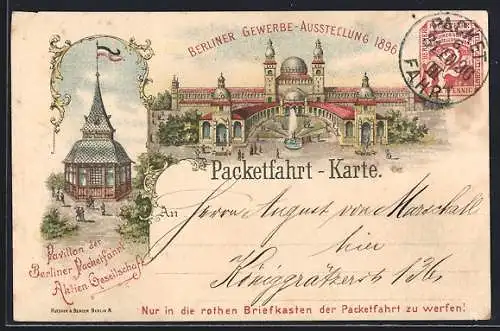 BERLINER GEWERBE-AUSSTELLUNG 1896
PACKET
FAHRT
PFENNIG
Packetfahrt - Karte.
Pavillon der
Berliner Packetfahrt
Aktien Gesellschaft
An Herrn August von Marschall
hier
Königgrätzerst 136
Nur in die rothen Briefkasten der Packetfahrt zu werfen!